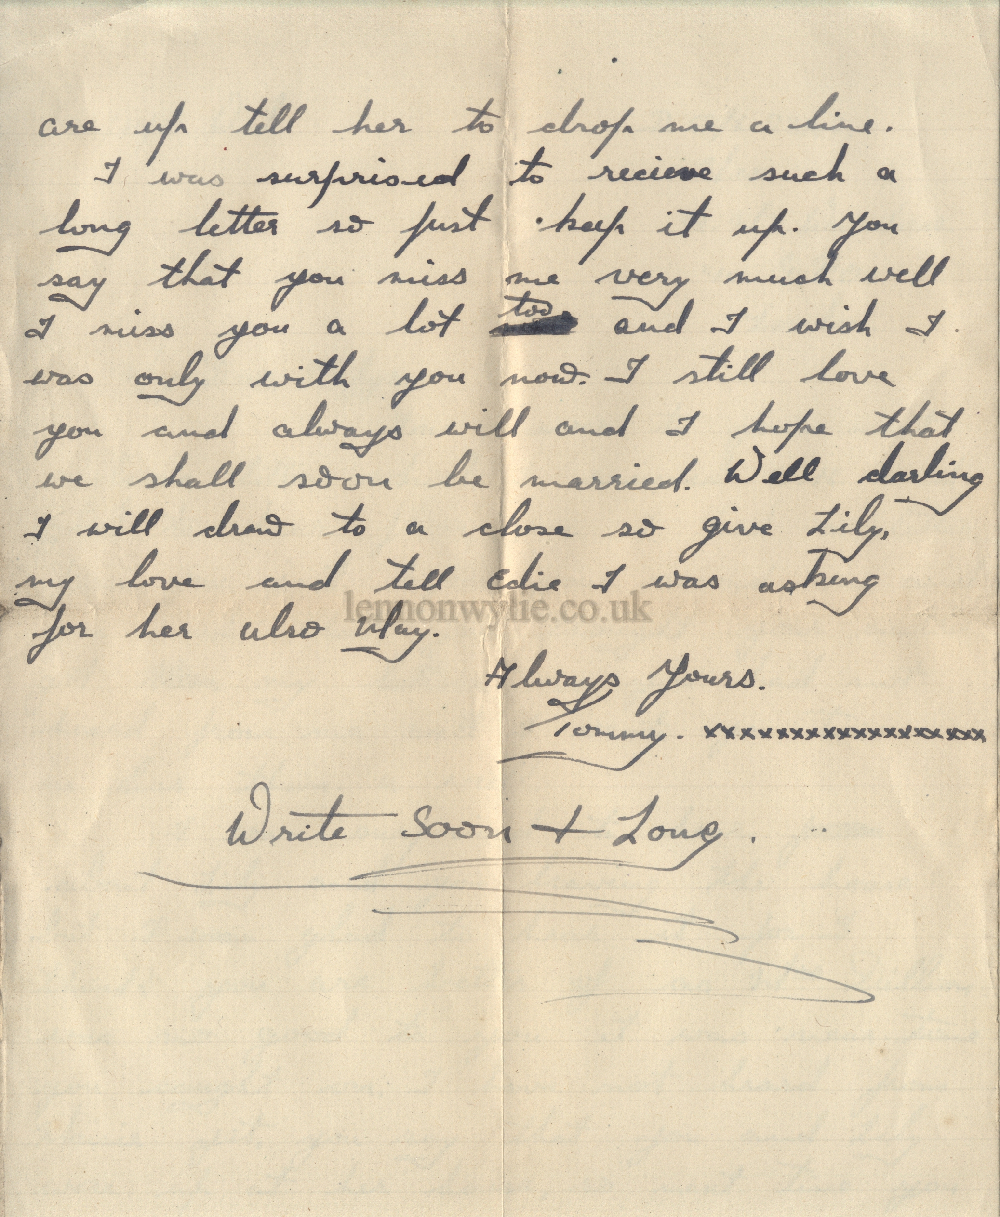 are up tell her to drop me a line.
I was surprised to recieve such a
long letter so just keep it up. You
say that you miss me very much well
I miss you a lot too and I wish I
was only with you now. I still love
you and always will and I hope that
we shall soon be married. Well darling
I will draw to a close so give Lily,
my love and tell Edie I was asking
for her also May.
lennonwylie.co.uk
Always Yours.
Tommy. xxxxxxxxxxxxxxxxxx
Write Soon + Long.